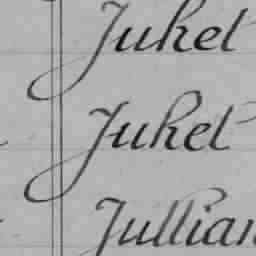 Juhel
Juhel
Jullian